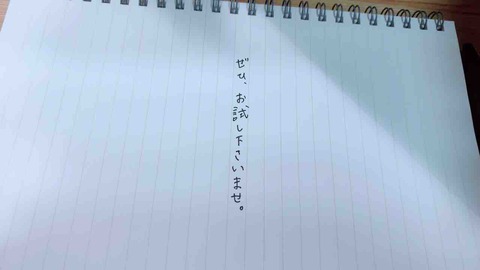 ぜひ、お試し下さいませ。